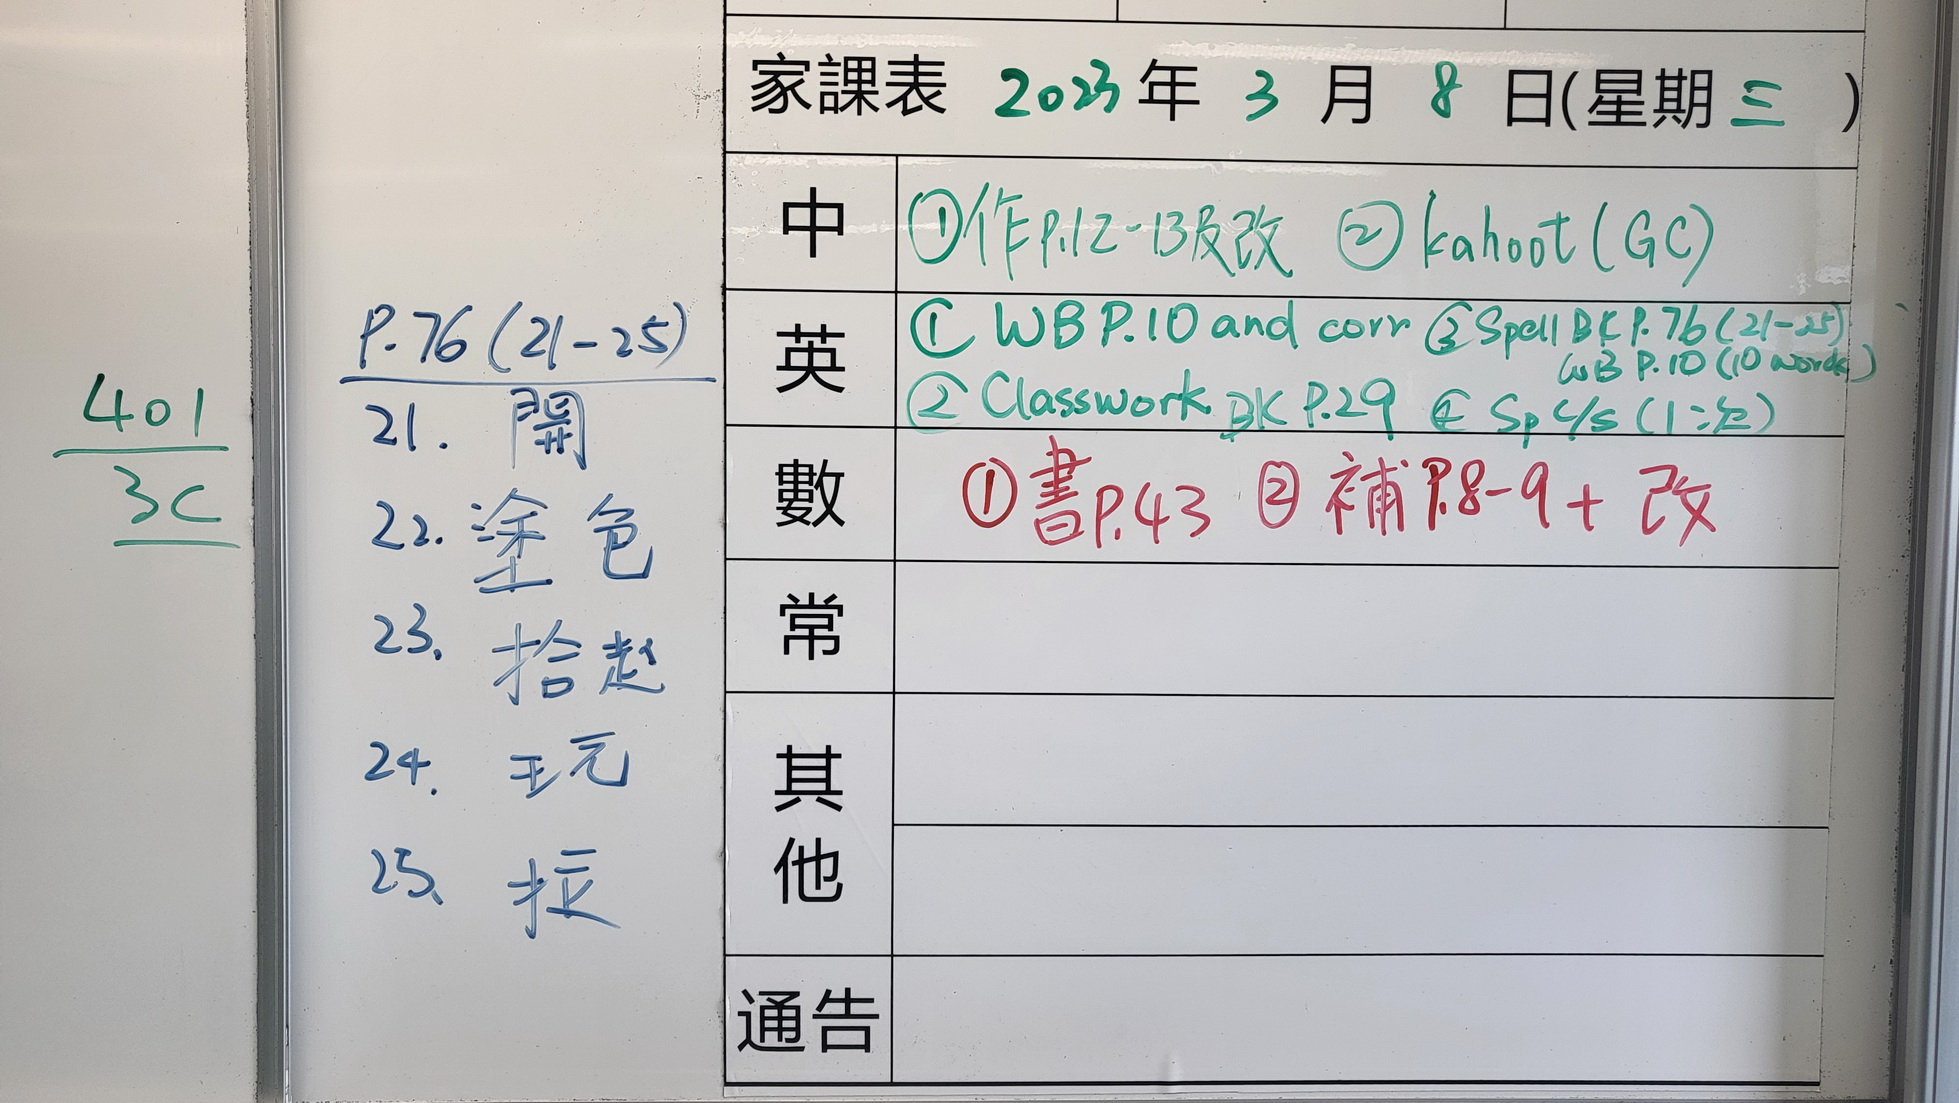 401
3C
P.76 (21-25)
21. 開
22. 塗色
23. 拾起
24. 玩
25. 拉
家課表 2023年 3 月 8 日(星期三)
中 ①作P.12-13及改 ②kahoot(GC)
英 ① WB P.10 and corr ③ Spell BK P.76 (21-25)
WB P.10 (10 words)
② Classwork BK P.29 ④ Sp c/s (1次)
數 ①書P.43 ②補P.8-9+改
常
其他
通告